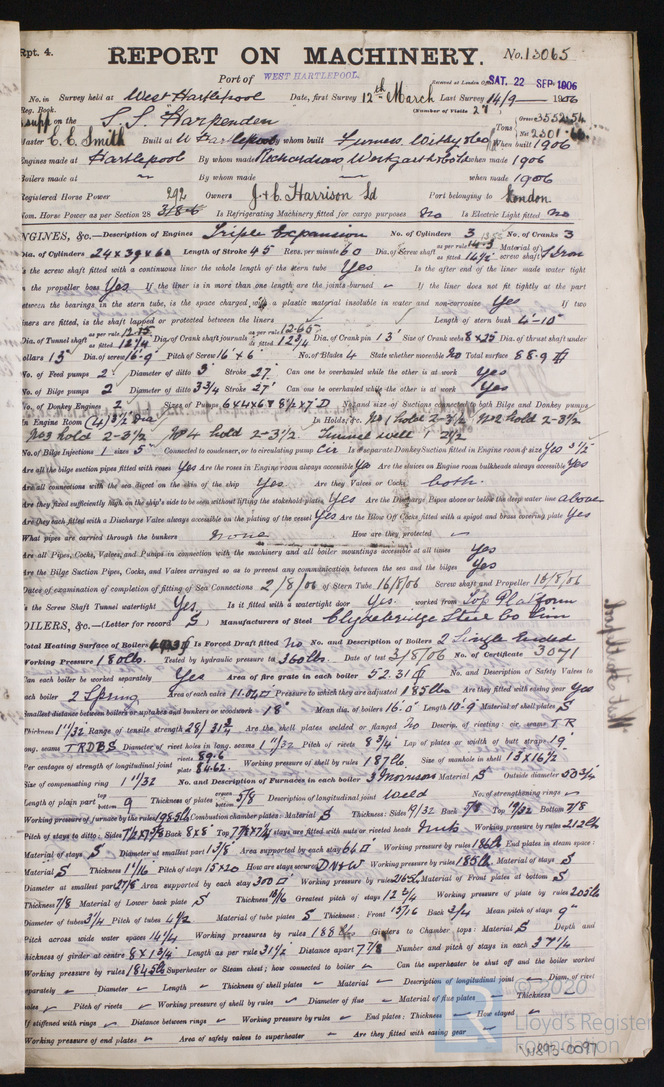 Rpt. 4.
REPORT ON MACHINERY. No. 13065
Port of WEST HARTLEPOOL
Received at London Office SAT. 22 SEP 1906
No. in Survey held at West Hartlepool Date, first Survey 12th March Last Survey 14/9 1906
Reg. Book. (Number of Visits 27)
on the S.S. Harpenden Tons Gross 3552.54 Net 2301.66
Master C. E. Smith Built at W Hartlepool By whom built Furness, Withy & Co When built 1906
Engines made at Hartlepool By whom made Richardsons, Westgarth & Co Ld when made 1906
Boilers made at By whom made when made 1906
Registered Horse Power 292 Owners J & C Harrison Ld Port belonging to London
Nom. Horse Power as per Section 28 Is Refrigerating Machinery fitted for cargo purposes No Is Electric Light fitted No
ENGINES, &c.—Description of Engines Triple Expansion No. of Cylinders 3 No. of Cranks 3
Dia. of Cylinders 24 x 39 x 60 Length of Stroke 45 Revs. per minute 60 Dia. of Screw shaft as per rule as fitted 14½ Material of screw shaft Iron
Is the screw shaft fitted with a continuous liner the whole length of the stern tube Yes Is the after end of the liner made water tight
in the propeller boss Yes If the liner is in more than one length are the joints burned If the liner does not fit tightly at the part
between the bearings in the stern tube, is the space charged with a plastic material insoluble in water and non-corrosive Yes If two
liners are fitted, is the shaft lapped or protected between the liners Length of stern bush 4'-10"
Dia. of Tunnel shaft as per rule as fitted 12¼ Dia. of Crank shaft journals as per rule 12.65 as fitted 12¾ Dia. of Crank pin 13" Size of Crank webs 8 x 25 Dia. of thrust shaft under
collars 13" Dia. of screw 16'-9 Pitch of Screw 16'6" No. of Blades 4 State whether moveable No Total surface 88.9
No. of Feed pumps 2 Diameter of ditto 3 Stroke 27" Can one be overhauled while the other is at work Yes
No. of Bilge pumps 2 Diameter of ditto 3¾ Stroke 27" Can one be overhauled while the other is at work Yes
No. of Donkey Engines 2 Sizes of Pumps 6x4x6 & 8½x7 D No. and size of Suctions connected to both Bilge and Donkey pumps
In Engine Room (4) 3½ dia In Holds, &c. No 1 hold 2-3½ No 2 hold 2-3½
No 3 hold 2-3½ No 4 hold 2-3½ Tunnel well 1 2½
No. of Bilge Injections 1 sizes 5" Connected to condenser, or to circulating pump Cir Is a separate Donkey Suction fitted in Engine room & size Yes 3½"
Are all the bilge suction pipes fitted with roses Yes Are the roses in Engine room always accessible Yes Are the sluices on Engine room bulkheads always accessible Yes
Are all connections with the sea direct on the skin of the ship Yes. Are they Valves or Cocks both.
Are they fixed sufficiently high on the ship's side to be seen without lifting the stokehold plates Yes Are the Discharge Pipes above or below the deep water line above
Are they each fitted with a Discharge Valve always accessible on the plating of the vessel Yes Are the Blow Off Cocks fitted with a spigot and brass covering plate Yes
What pipes are carried through the bunkers none How are they protected
Are all Pipes, Cocks, Valves, and Pumps in connection with the machinery and all boiler mountings accessible at all times Yes
Are the Bilge Suction Pipes, Cocks, and Valves arranged so as to prevent any communication between the sea and the bilges Yes
Dates of examination of completion of fitting of Sea Connections 2/8/06 of Stern Tube 16/8/06 Screw shaft and Propeller 16/8/06
Is the Screw Shaft Tunnel watertight Yes Is it fitted with a watertight door Yes. worked from Top Platform
BOILERS, &c.—(Letter for record S) Manufacturers of Steel Clydebridge Steel Co Lim
Total Heating Surface of Boilers Is Forced Draft fitted No No. and Description of Boilers 2 Single Ended
Working Pressure 180 lbs. Tested by hydraulic pressure to 360 lbs. Date of test 3/8/06 No. of Certificate 3071
Can each boiler be worked separately Yes Area of fire grate in each boiler 52.31 No. and Description of Safety Valves to
each boiler 2 Spring Area of each valve 11.04 Pressure to which they are adjusted 185 lbs Are they fitted with easing gear Yes
Smallest distance between boilers or uptakes and bunkers or woodwork 18" Mean dia. of boilers 16'-0" Length 10'-9 Material of shell plates S
Thickness 1 11/32 Range of tensile strength 28/31¾ Are the shell plates welded or flanged No Descrip. of riveting: cir. seams T.R
long. seams TRDBS Diameter of rivet holes in long. seams 1 11/32 Pitch of rivets 8¾ Lap of plates or width of butt straps 19
Per centages of strength of longitudinal joint rivets 89.6 plate 84.62 Working pressure of shell by rules 187 lb Size of manhole in shell 13 x 16½
Size of compensating ring 1 11/32 No. and Description of Furnaces in each boiler 3 Morrison Material S Outside diameter 50¾
Length of plain part top bottom 9 Thickness of plates crown bottom 5/8 Description of longitudinal joint Weld No. of strengthening rings
Working pressure of furnace by the rules 198.5 lb Combustion chamber plates: Material S Thickness: Sides 19/32 Back 7/8 Top 19/32 Bottom 7/8
Pitch of stays to ditto: Sides Back 8 x 8 Top If stays are fitted with nuts or riveted heads Nuts Working pressure by rules 212 lb
Material of stays S Diameter at smallest part 1 3/8 Area supported by each stay 66 Working pressure by rules 186 lb End plates in steam space:
Material S Thickness 1 1/16 Pitch of stays 15 x 20 How are stays secured D N & W Working pressure by rules 185 lb Material of stays S
Diameter at smallest part 2 7/8 Area supported by each stay 300 Working pressure by rules Material of Front plates at bottom S
Thickness 7/8 Material of Lower back plate S Thickness 13/16 Greatest pitch of stays 12¾ Working pressure of plate by rules 205 lb
Diameter of tubes 3¼ Pitch of tubes 4½ Material of tube plates S Thickness: Front 15/16 Back ¾ Mean pitch of stays 9"
Pitch across wide water spaces 14¼ Working pressures by rules 188 Girders to Chamber tops: Material S Depth and
thickness of girder at centre 8 x 1¾ Length as per rule 31½ Distance apart 7 7/8 Number and pitch of stays in each 3 7¼
Working pressure by rules 184.5 lb Superheater or Steam chest; how connected to boiler Can the superheater be shut off and the boiler worked
separately Diameter Length Thickness of shell plates Material Description of longitudinal joint Diam. of rivet
holes Pitch of rivets Working pressure of shell by rules Diameter of flue Material of flue plates Thickness
If stiffened with rings Distance between rings Working pressure by rules End plates: Thickness How stayed
Working pressure of end plates Area of safety valves to superheater Are they fitted with easing gear
© 2020
Lloyd's Register
Foundation
W893-0097